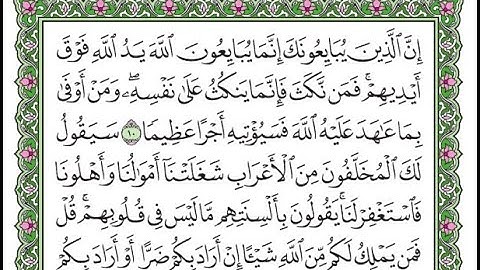 إِنَّ ٱلَّذِينَ يُبَايِعُونَكَ إِنَّمَا يُبَايِعُونَ ٱللَّهَ يَدُ ٱللَّهِ فَوْقَ
أَيْدِيهِمْۚ فَمَن نَّكَثَ فَإِنَّمَا يَنكُثُ عَلَىٰ نَفْسِهِۦۖ وَمَنْ أَوْفَىٰ
بِمَا عَٰهَدَ عَلَيْهُ ٱللَّهَ فَسَيُؤْتِيهِ أَجْرًا عَظِيمًا ١٠ سَيَقُولُ
لَكَ ٱلْمُخَلَّفُونَ مِنَ ٱلْأَعْرَابِ شَغَلَتْنَآ أَمْوَٰلُنَا وَأَهْلُونَا
فَٱسْتَغْفِرْ لَنَاۚ يَقُولُونَ بِأَلْسِنَتِهِم مَّا لَيْسَ فِى قُلُوبِهِمْۚ قُلْ
فَمَن يَمْلِكُ لَكُم مِّنَ ٱللَّهِ شَيْـًٔا إِنْ أَرَادَ بِكُمْ ضَرًّا أَوْ أَرَادَ بِكُمْ